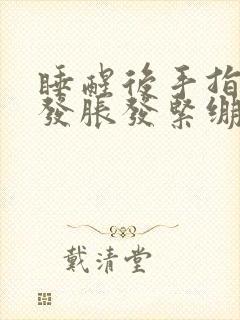 睡醒後手指
發脹發緊繃
戴清堂